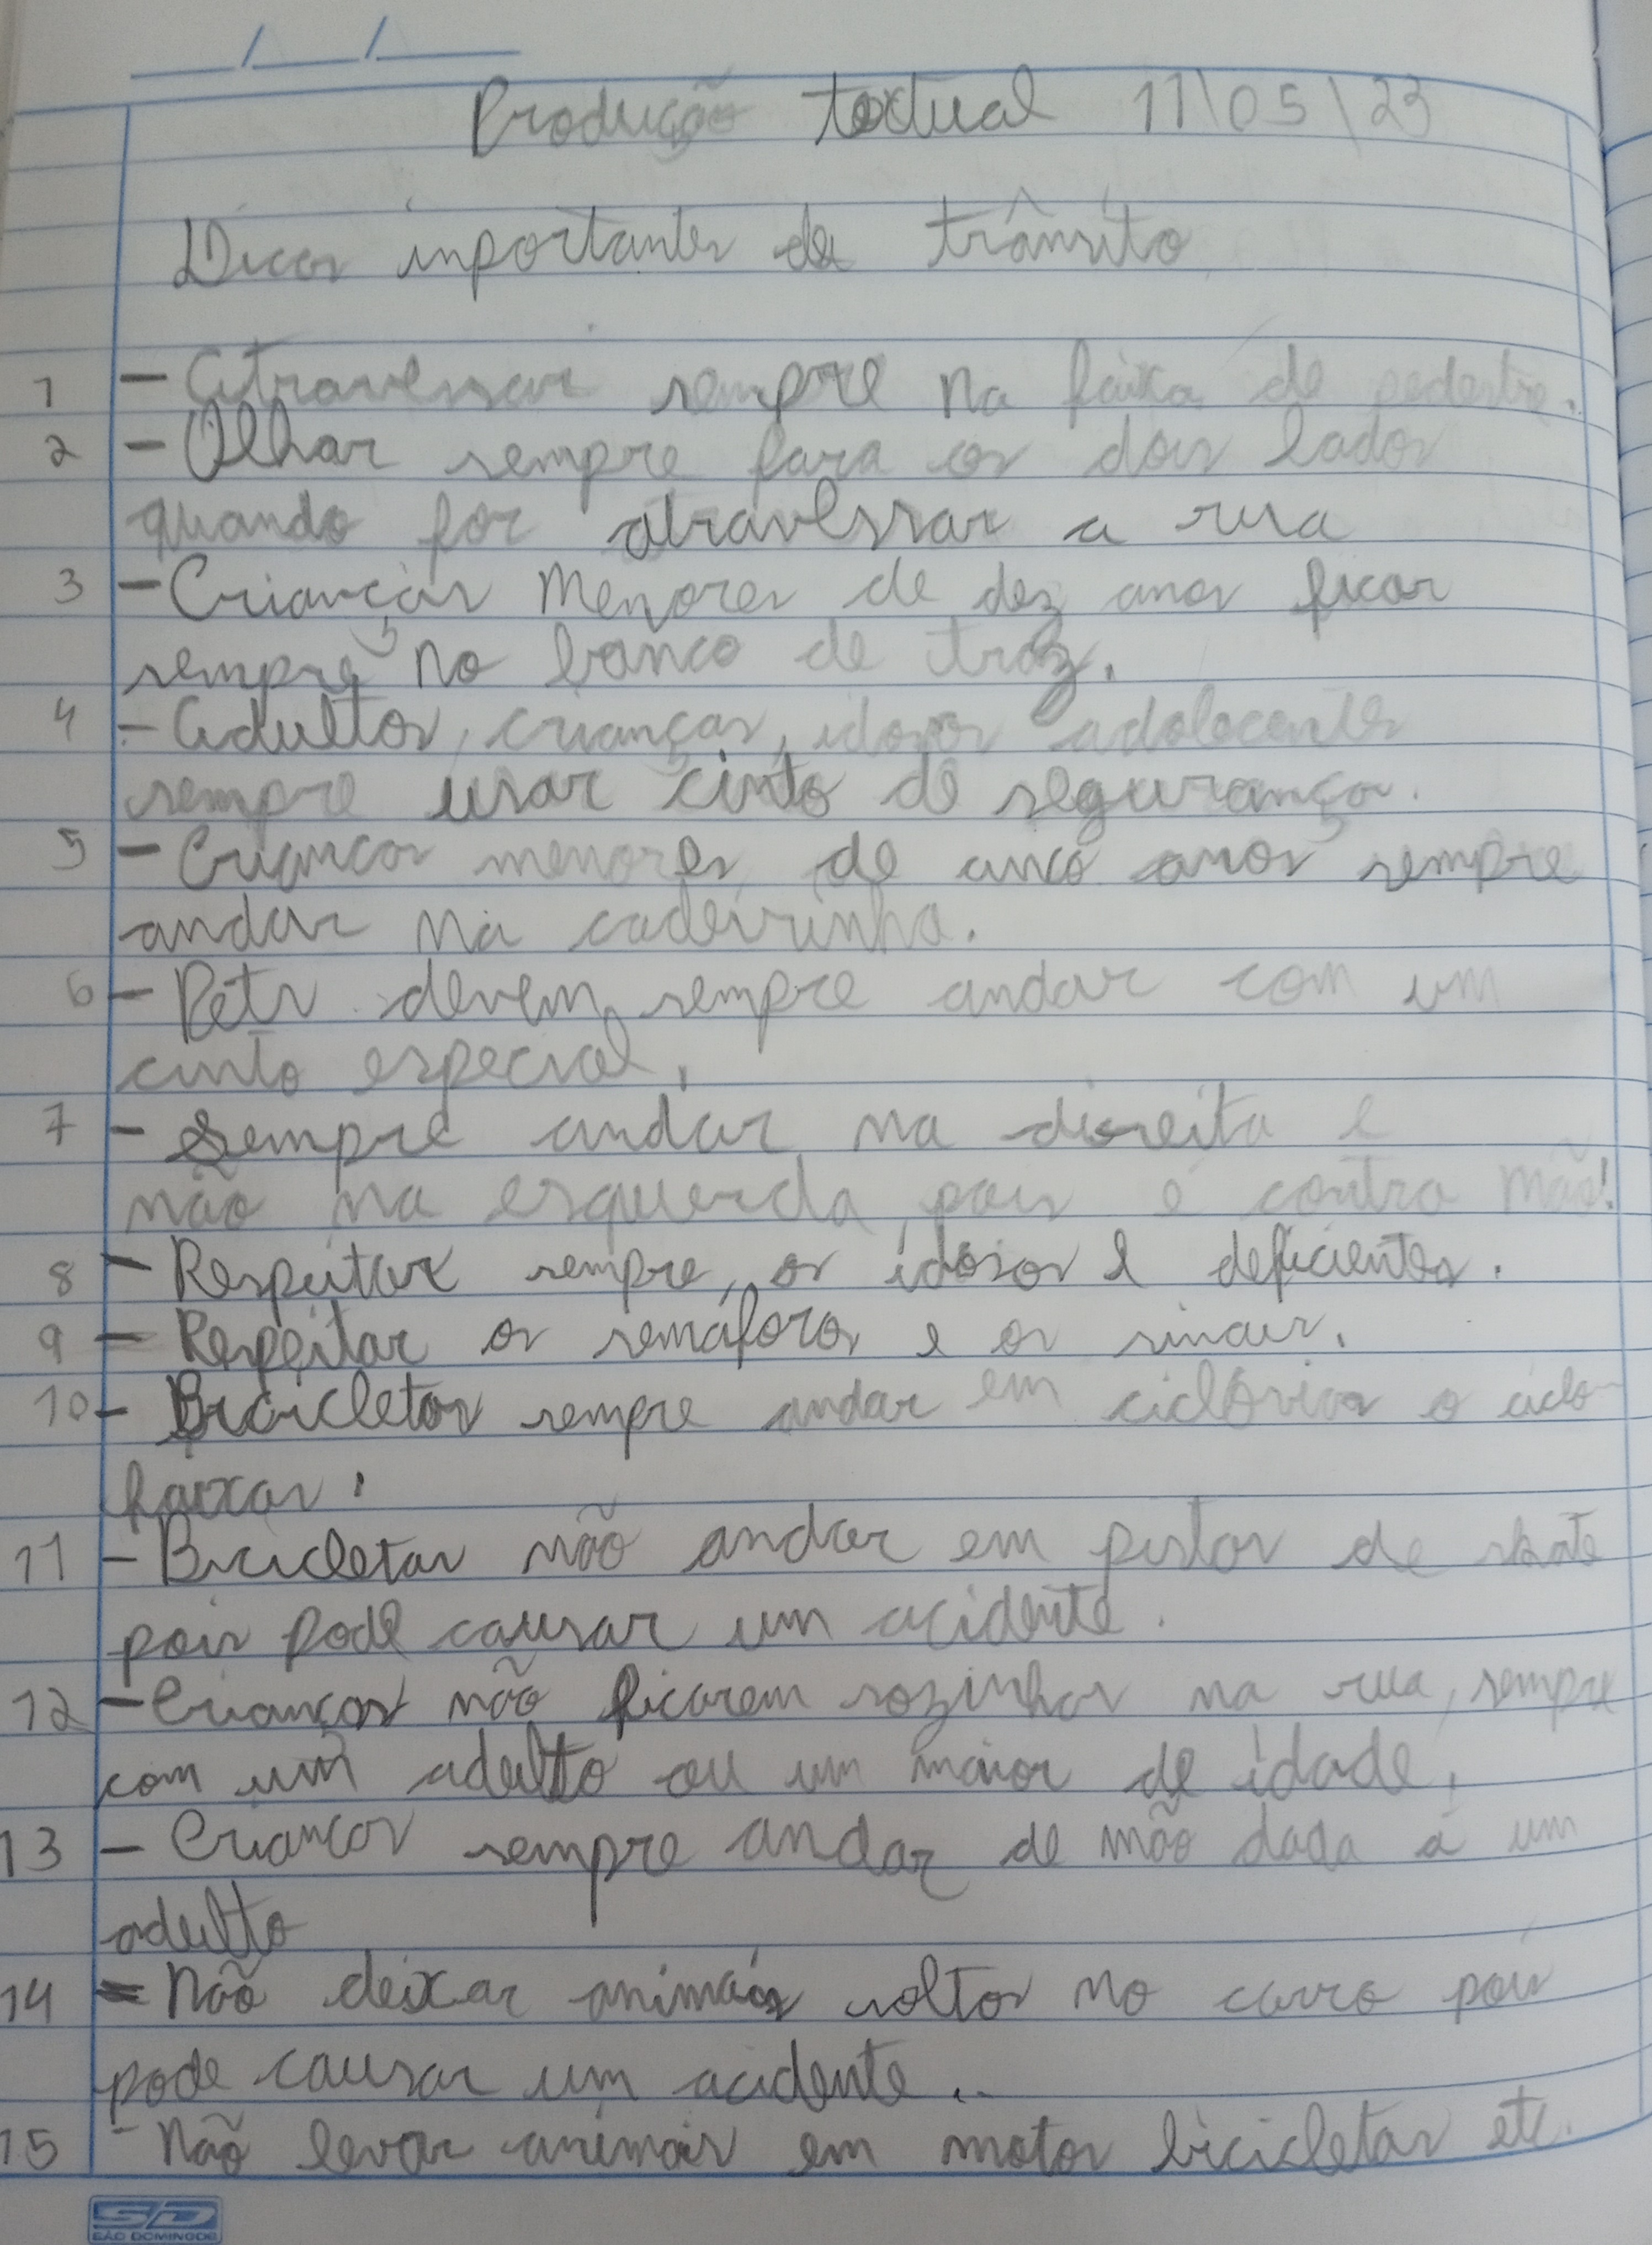 Produção textual 11\05\23
Dicas inportantes de trânsito
1 - Atravessar sempre na faixa de pedestre.
2 - Olhar sempre para os dois lados
quando for atravessar a rua
3 - Crianças menores de dez anos ficar
sempre no banco de traz.
4 - Adultos, crianças, idosos adolecentes
sempre usar cinto de segurança.
5 - Criancas menores de cinco anos sempre
andar na cadeirinha.
6 - Pets devem sempre andar com um
cinto especial.
7 - Sempre andar na direita e
não na esquerda, pois é contra mão!
8 - Respeitar sempre, os idosos e deficientes.
9 - Respeitar os semáforos e os sinais.
10 - Bicicletas sempre andar em ciclóvias o ciclo-
faixas.
11 - Bicicletas não andar em pistas de skate
pois pode causar um acidente.
12 - Crianças não ficarem sozinhas na rua, sempre
com um adulto ou um maior de idade.
13 - Criancas sempre andar de mão dada á um
adulto
14 - Não deixar animais soltos no carro pois
pode causar um acidente..
15 - Não levar animais em motos bicicletas etc.
SD
SÃO DOMINGOS